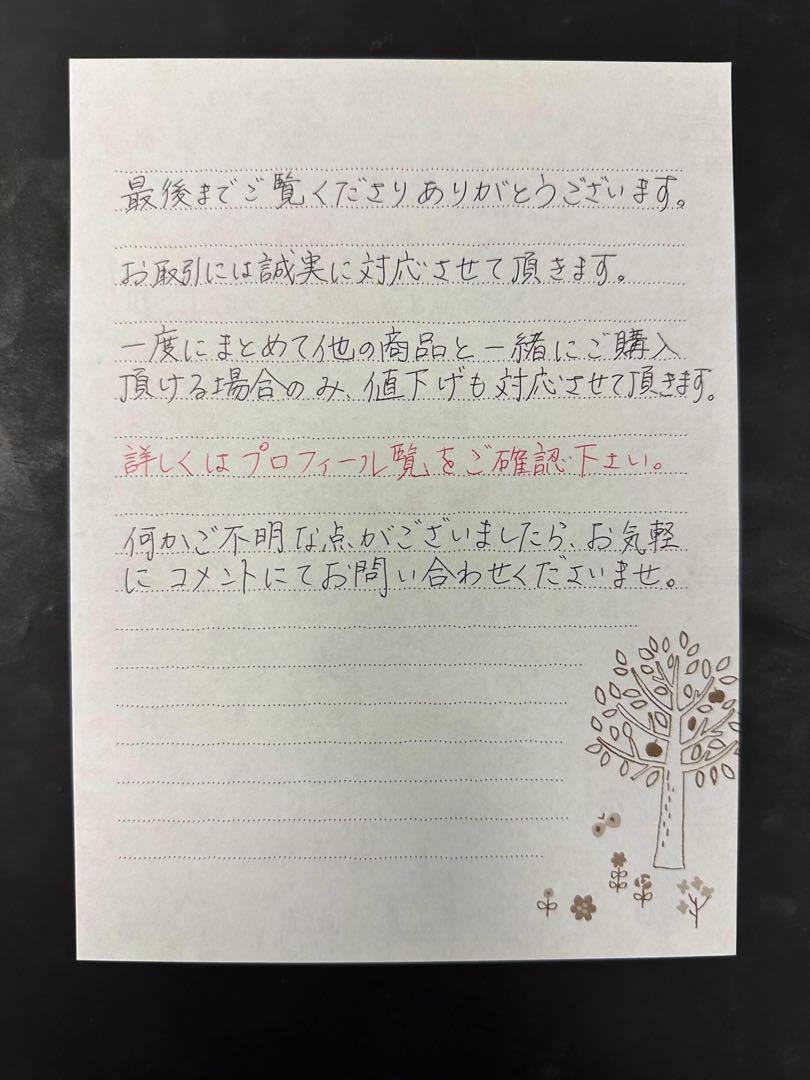 最後までご覧くださりありがとうございます。
お取引には誠実に対応させて頂きます。
一度にまとめて他の商品と一緒にご購入
頂ける場合のみ、値下げも対応させて頂きます。
詳しくはプロフィール覧をご確認下さい。
何かご不明な点がございましたら、お気軽
にコメントにてお問い合わせくださいませ。